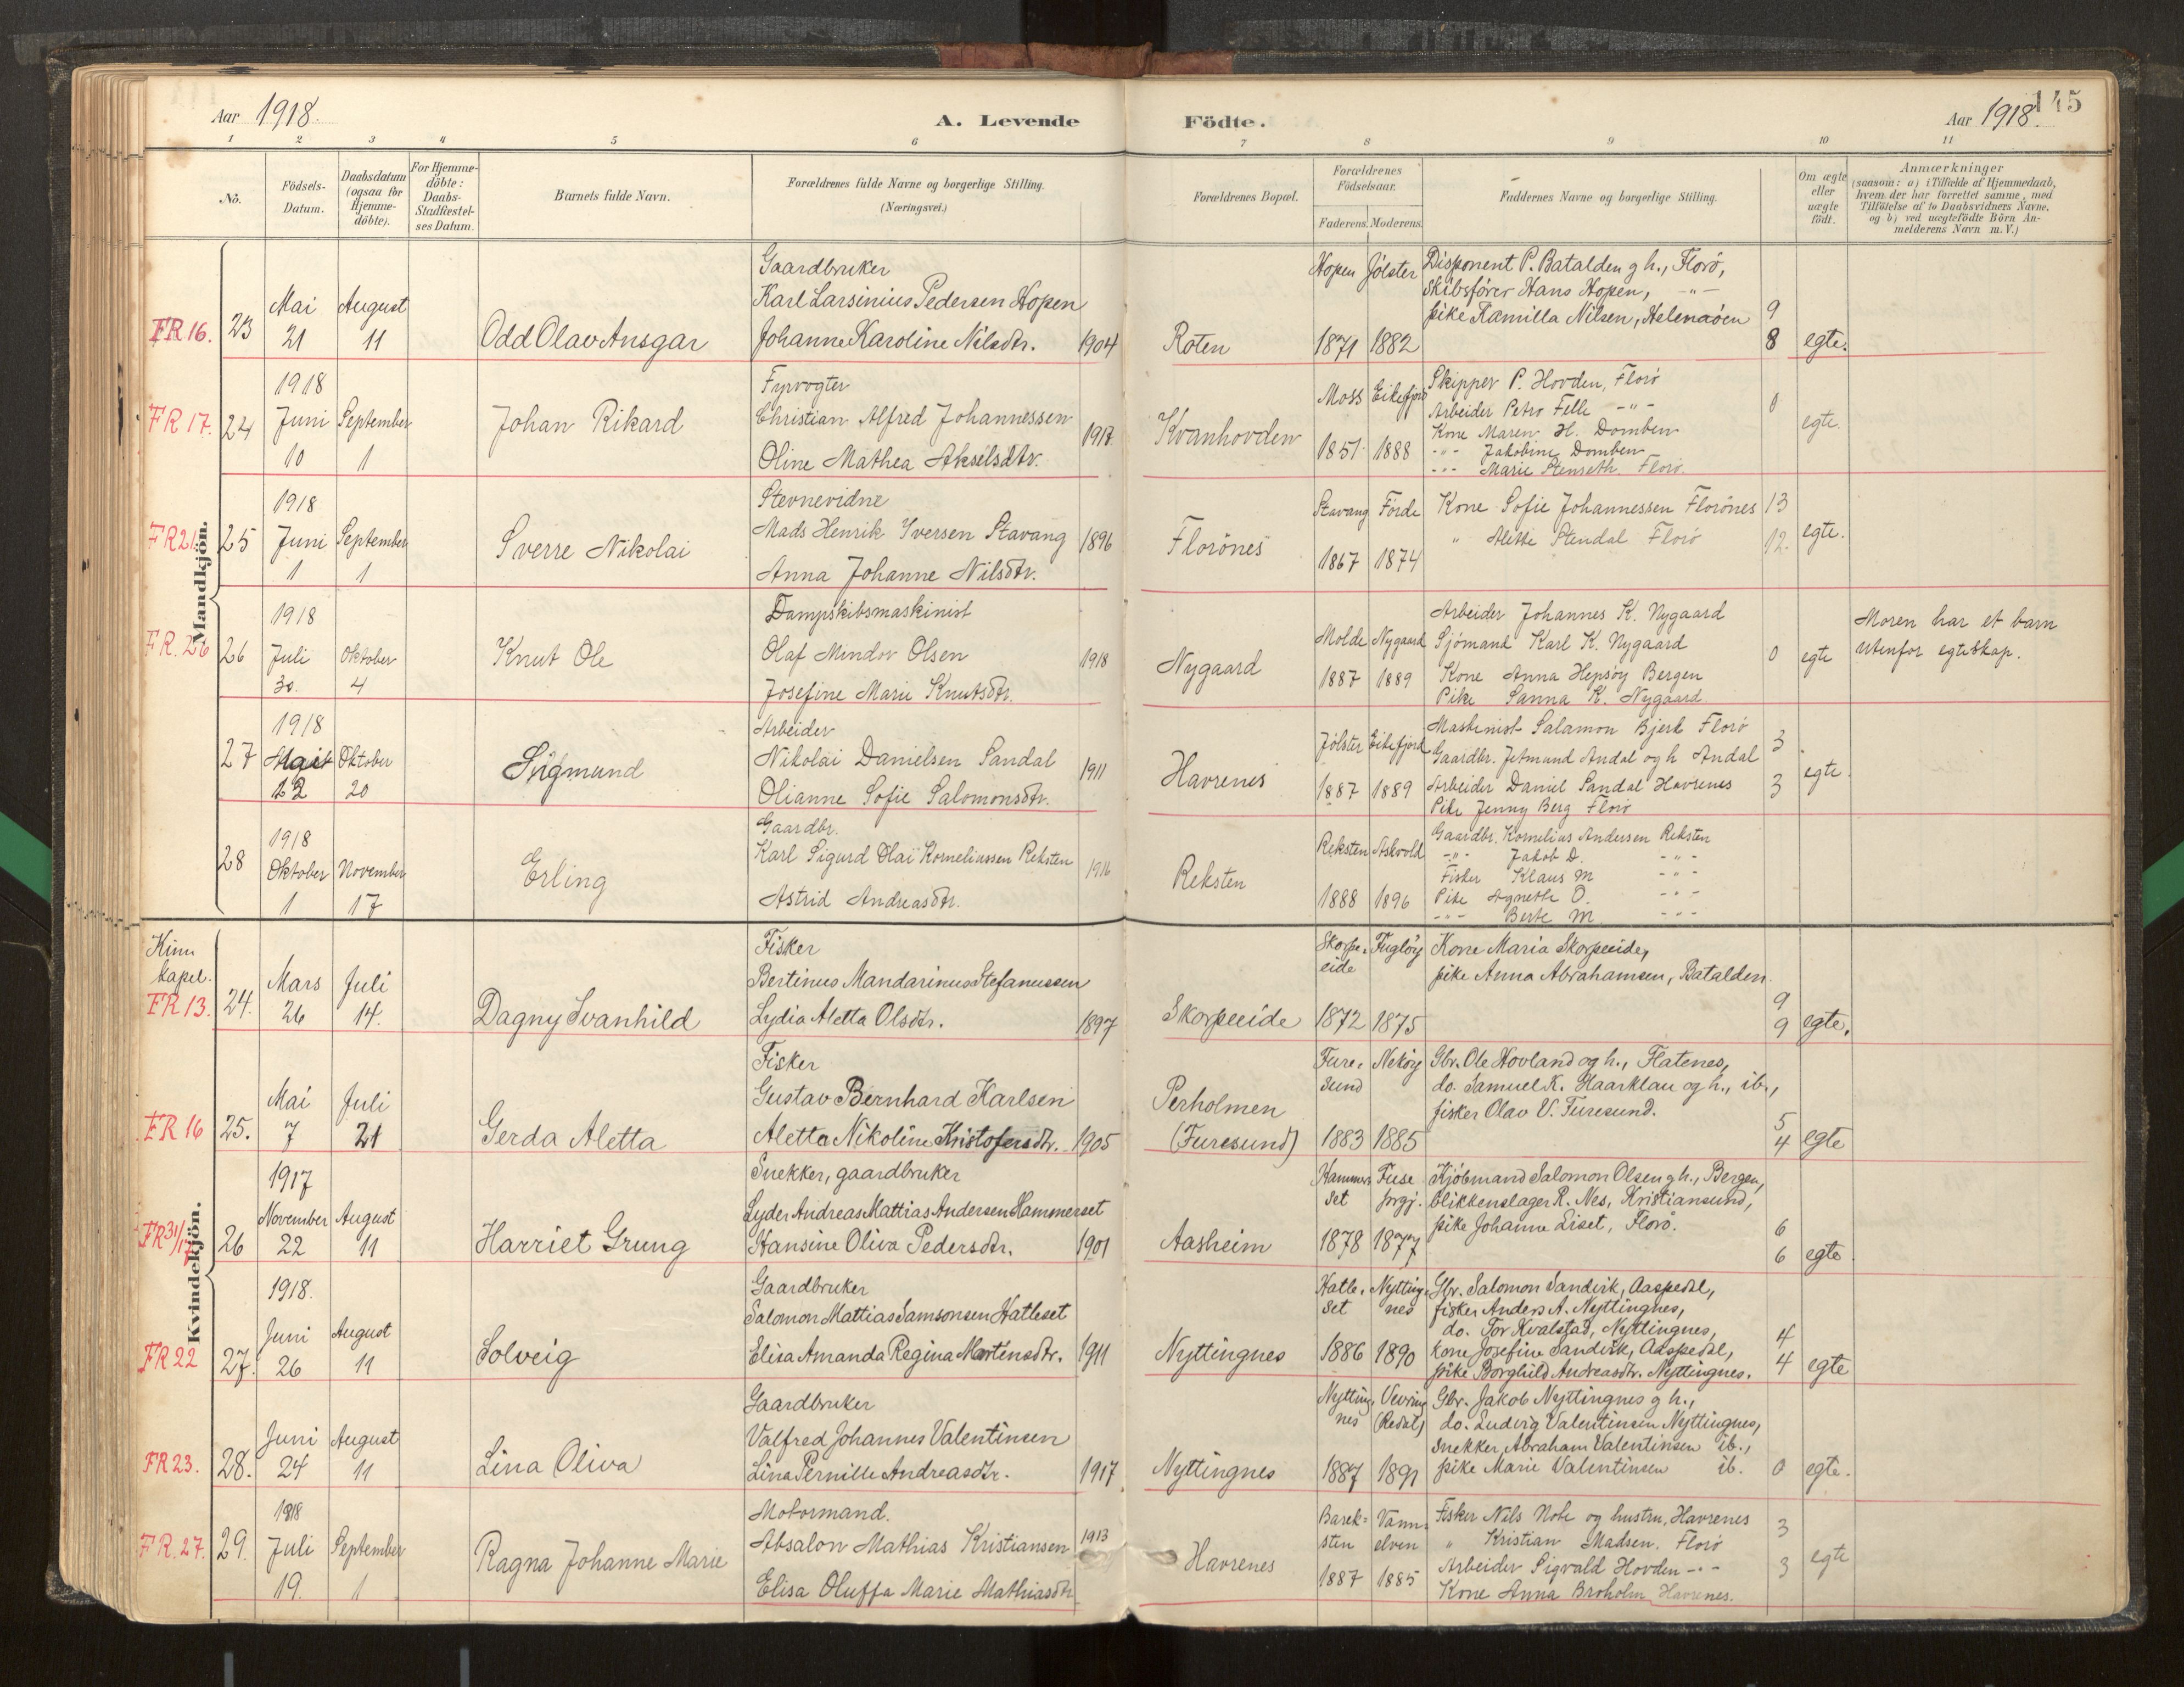 Aar 1918.
A. Levende Födte.
Aar 1918.
145
1 2 3 4 5 6 7 8 9 10 11
No.
Födsels-Datum.
Daabsdatum (ogsaa for Hjemme-döbte).
For Hjemme-döbte: Daabs-Stadfæstel-ses Datum.
Barnets fulde Navn.
Forældrenes fulde Navne og borgerlige Stilling.
(Næringsvei.)
Forældrenes Bopæl.
Forældrenes Födselsaar.
Faderens. Moderens.
Faddernes Navne og borgerlige Stilling.
Om ægte eller uægte födt.
Anmærkninger
(saasom: a) i Tilfælde af Hjemmedaab,
hvem der har forrettet samme, med
Tilföielse af to Daabsvidners Navne,
og b) ved uægtefödte Börn An-
melderens Navn m. V.)
Mandkjön.
FR 16. 23 Mai 21 August 11
Odd Olav Ansgar
Gaardbruker
Karl Larsinius Pedersen Hopen
Johanne Karoline Nilsdtr. 1904
Roten
Hopen Jölster
1871 1882
Disponent P. Batalden g h., Florö,
Skibsförer Hans Hopen, -"-
pike Kamilla Nilsen, Helenaöen
9
8 egte.
FR 17. 24 1918 Juni 10 September 1
Johan Rikard
Fyrvogter
Christian Alfred Johannessen
Oline Mathea Akselsdtr. 1917
Kvanhovden
Moss Eikefjord
1851 1888
Skipper P. Hovden, Florö
Arbeider Petro Felle -"-
Kone Maren H. Domben
-"- Jakobine Domben
-"- Marie Stenseth Florö.
0 egte.
FR 21. 25 1918 Juni 1 September 1
Sverre Nikolai
Stevnevidne
Mads Henrik Iversen Stavang 1896
Anna Johanne Nilsdtr.
Florönes
Stavang Förde
1867 1874
Kone Sofie Johannessen Florönes
" Alette Stendal Florö
13
12. egte.
FR. 26 26 1918 Juli 30. Oktober 4
Knut Ole
Dampskibsmaskinist
Olaf Mindor Olsen 1918
Josefine Marie Knutsdtr.
Nygaard
Molde Nygaard
1887 1889
Arbeider Johannes K. Nygaard
Sjömand Karl K. Nygaard
Kone Anna Hepsöy Bergen
Pike Sanna K. Nygaard
0 egte
Moren har et barn
utenfor egteskap.
27 1918 12 Oktober 20
Sigmund
Arbeider
Nikolai Danielsen Sandal 1911
Olianne Sofie Salomonsdtr.
Havrenes
Jölster Eikefjord
1887 1889
Maskinist Salamon Bjerk Florö
Gaardbr. Jetmund Andal og h Andal
Arbeider Daniel Sandal Havrenes
Pike Jenny Berg Florö
3
3 egte.
28 1918 Oktober 1 November 17
Erling
Gaardbr.
Karl Sigurd Olai Korneliussen Reksten 1916
Astrid Andreasdtr.
Reksten
Reksten Askvold
1888 1896
Gaardbr. Kornelius Andersen Reksten
-"- Jakob D. -"-
Fisker Klaus M -"-
Pike Agnethe O. -"-
-"- Berte M -"-
Kvindekjön.
Kinn
kapel.
FR 13. 24. Mars 26 Juli 14.
Dagny Svanhild
Fisker
Bertinus Mandarinus Stefanussen
Lydia Aletta Olsdtr. 1897
Skorpeeide
Skorpe-eide Fuglöy
1872 1875
Kone Maria Skorpeeide,
pike Anna Abrahamsen, Batalden.
9
9 egte.
FR 16 25. Mai 7 Juli 21
Gerda Aletta
Fisker
Gustav Bernhard Karlsen
Aletta Nikoline Kristofersdtr. 1905
Perholmen
(Furesund)
Fure-sund Neköy
1883 1885
Gbr. Ole Hovland og h., Flatenes,
do. Samuel K. Haarklau og h., ib.,
fisker Olav V. Furesund.
5
4 egte
FR 31/17 26 1917 November 22 August 11
Harriet Grung
Snekker, gaardbruker
Lyder Andreas Mattias Andersen Hammerset
Hansine Oliva Pedersdtr. 1901
Aasheim
Hammerset Fuse prgj.
1878 1877
Kjöbmand Salomon Olsen g h., Bergen,
blikkenslager R. Nes, Kristiansund,
pike Johanne Liset, Florö.
6
6 egte
FR 22 27. 1918. Juni 26 August 11
Solveig
Gaardbruker
Salomon Mattias Samsonsen Hatleset
Elisa Amanda Regina Mortensdtr. 1911
Nyttingnes
Hatle-set Nytting-nes
1886 1890
Gbr. Salomon Sandvik, Aaspedal,
fisker Anders A. Nyttingnes,
do. Tor Kvalstad, Nyttingnes,
kone Josefine Sandvik, Aaspedal,
pike Borghild Andreasdtr. Nyttingnes.
4
4 egte
FR 23. 28. Juni 24 August 11
Lina Oliva
Gaardbruker
Valfred Johannes Valentinsen
Lina Pernille Andreasdtr. 1917
Nyttingnes
Nytting-nes Vevring (Redal)
1887 1891
Gbr. Jakob Nyttingnes g h.,
do. Ludvig Valentinsen Nyttingnes,
snekker, Abraham Valentinsen ib.,
pike Marie Valentinsen ib.
0 egte.
FR. 27. 29. 1918 Juli 19. September 1
Ragna Johanne Marie
Motormand.
Absalon Mathias Kristiansen 1913
Elisa Oluffa Marie Mathiasdtr
Havrenes
Barek-sten Vann-elven
1887 1885
Fisker Nils Nobe og hustru, Havrenes
" Kristian Madsen. Florö
Arbeider Sigvald Hovden -"-
Kone Anna Broholm Havrenes.
3
3 egte